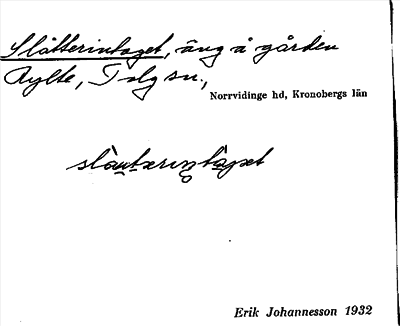 Slåtterintaget, äng å gården
Rylte, Tolg sn.,
Norrvidinge hd, Kronobergs län
Erik Johannesson 1932